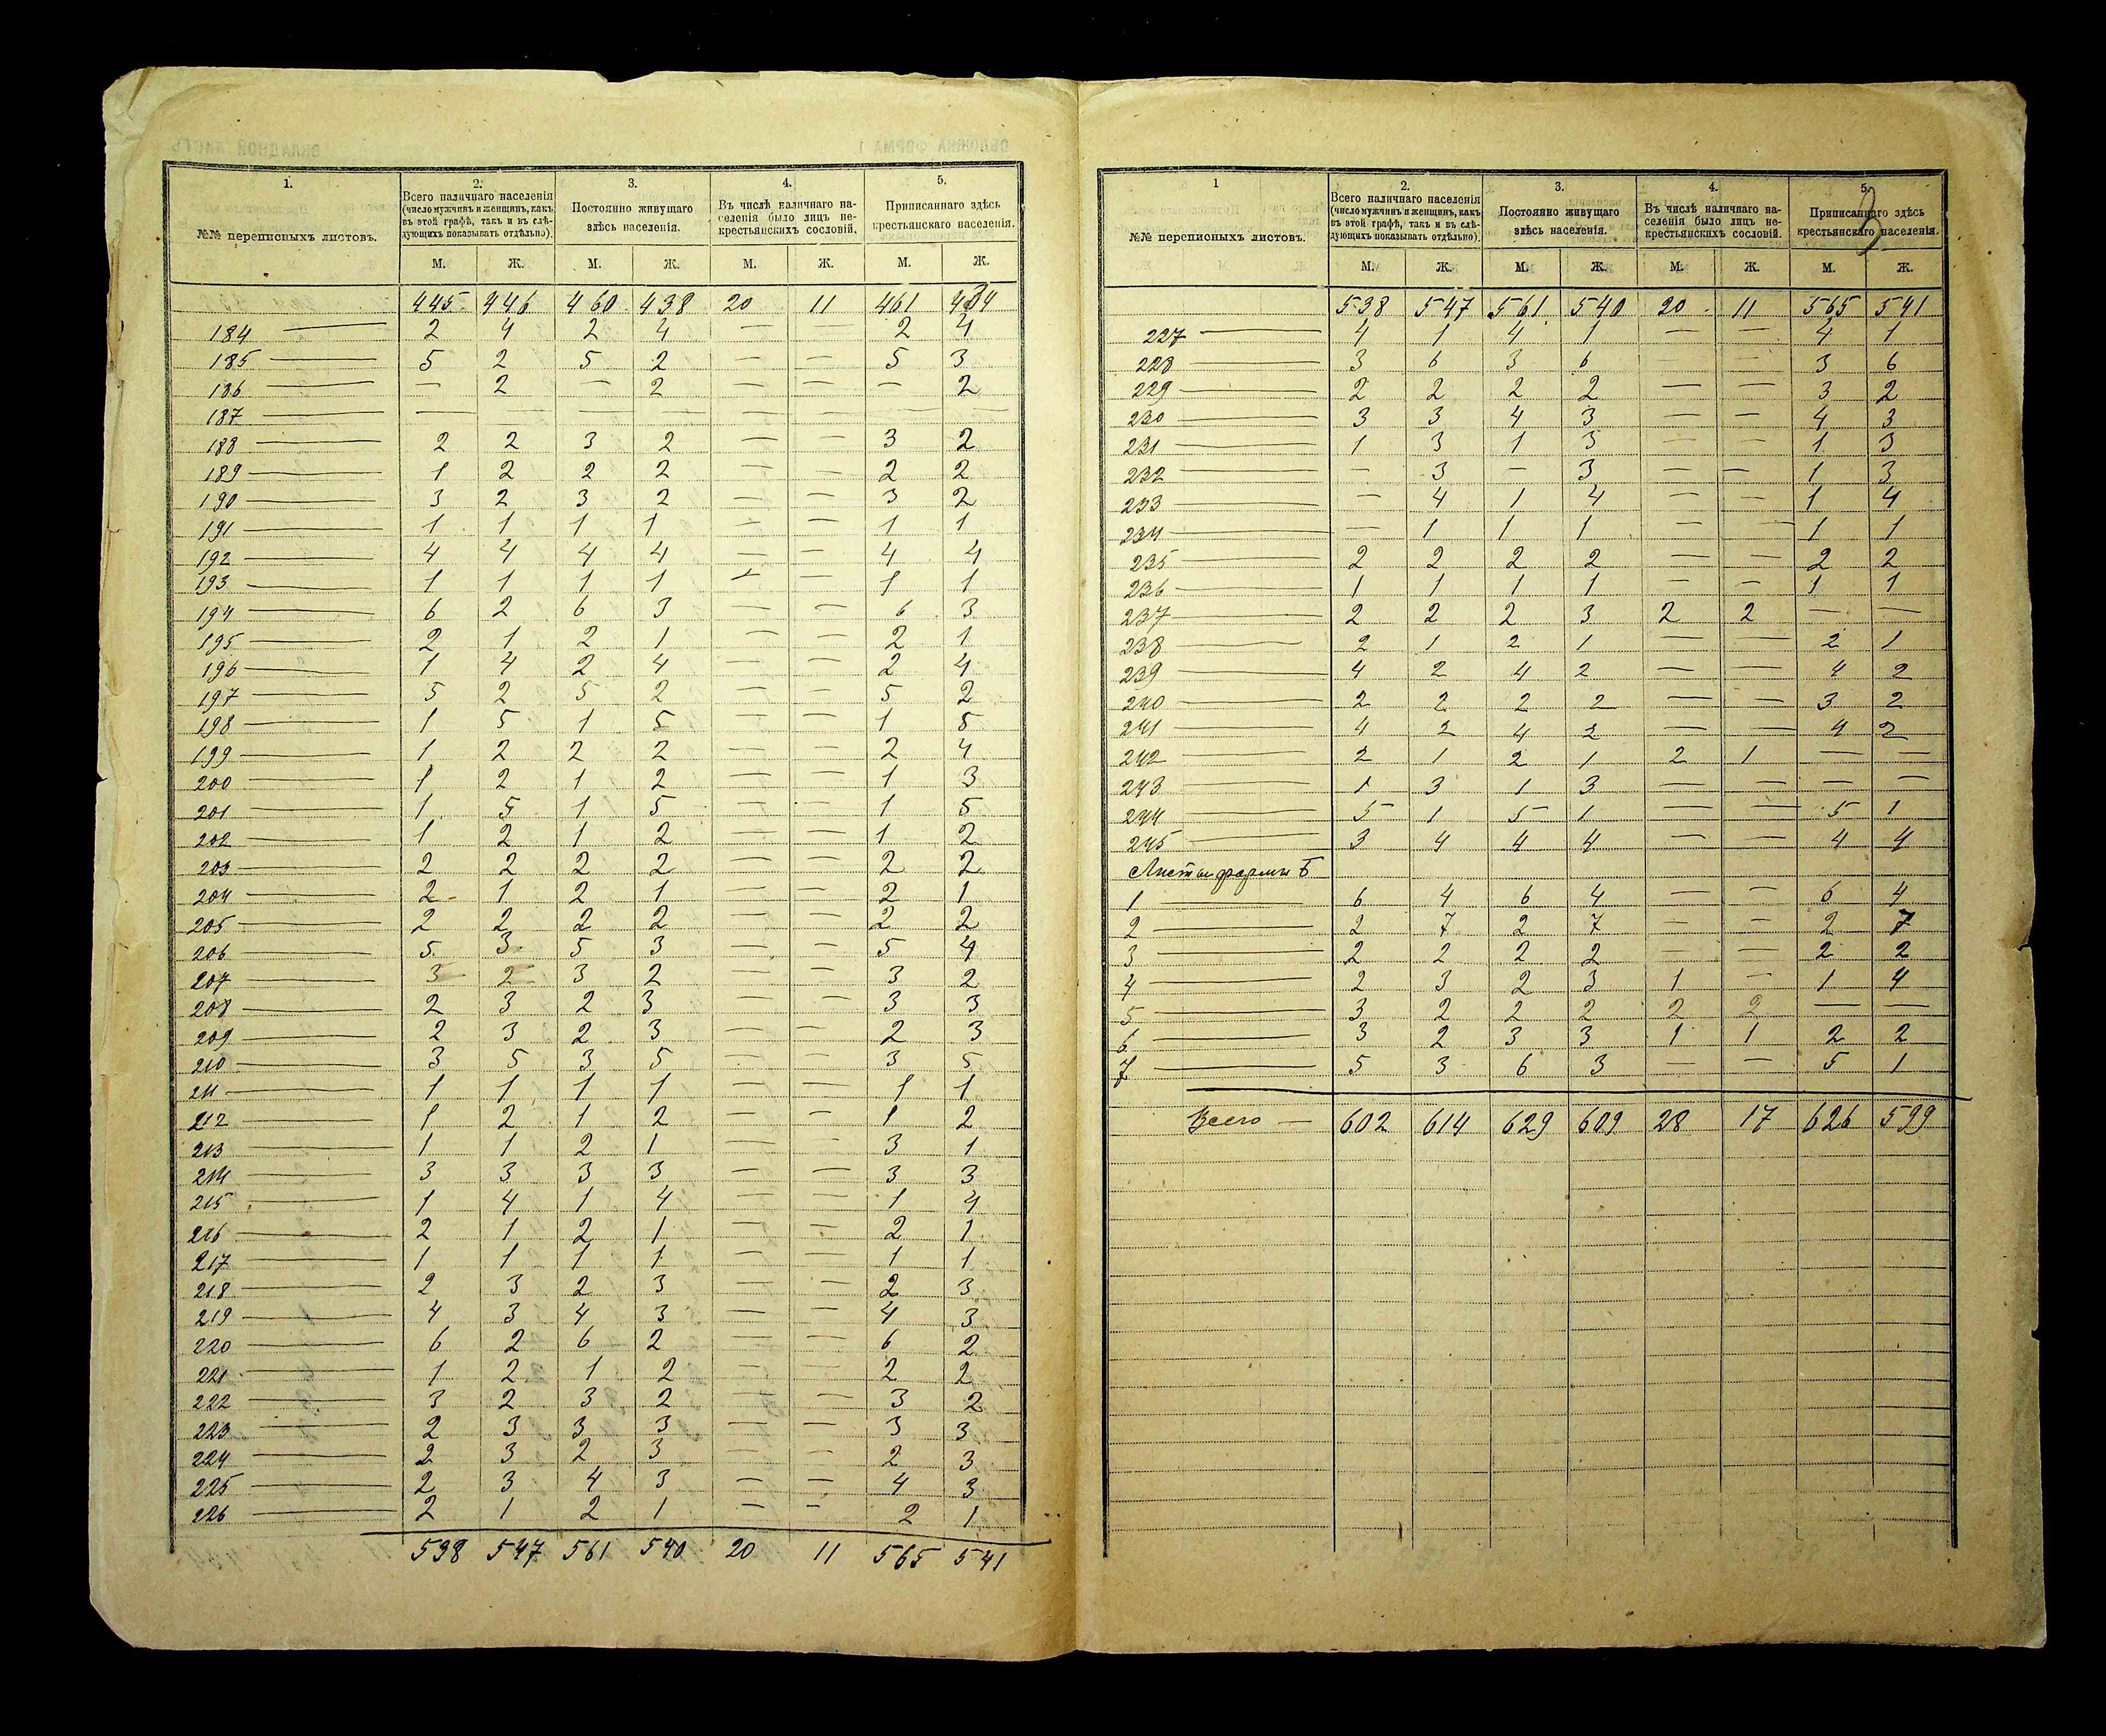 1. 2. 3. 4. 5.
№№ переписныхъ листовъ.
Всего наличнаго населенія (число мужчинъ и женщинъ, какъ въ этой графѣ, такъ и въ слѣдующихъ показывать отдѣльно).
Постоянно живущаго здѣсь населенія.
Въ числѣ наличнаго населенія было лицъ некрестьянскихъ сословій.
Приписаннаго здѣсь крестьянскаго населенія.
М. Ж. М. Ж. М. Ж. М. Ж.
445 446 460 438 20 11 461 434
184 2 4 2 4 — — 2 4
185 5 2 5 2 — — 5 3
186 — 2 — 2 — — — 2
187 — — — — — — — —
188 2 2 3 2 — — 3 2
189 1 2 2 2 — — 2 2
190 3 2 3 2 — — 3 2
191 1 1 1 1 — — 1 1
192 4 4 4 4 — — 4 4
193 1 1 1 1 — — 1 1
194 6 2 6 3 — — 6 3
195 2 1 2 1 — — 2 1
196 1 4 2 4 — — 2 4
197 5 2 5 2 — — 5 2
198 1 5 1 5 — — 1 5
199 1 2 2 2 — — 2 4
200 1 2 1 2 — — 1 3
201 1 5 1 5 — — 1 5
202 1 2 1 2 — — 1 2
203 2 2 2 2 — — 2 2
204 2 1 2 1 — — 2 1
205 2 2 2 2 — — 2 2
206 5 3 5 3 — — 5 4
207 3 2 3 2 — — 3 2
208 2 3 2 3 — — 3 3
209 2 3 2 3 — — 2 3
210 3 5 3 5 — — 3 5
211 1 1 1 1 — — 1 1
212 1 2 1 2 — — 1 2
213 1 1 2 1 — — 3 1
214 3 3 3 3 — — 3 3
215 1 4 1 4 — — 1 4
216 2 1 2 1 — — 2 1
217 1 1 1 1 — — 1 1
218 2 3 2 3 — — 2 3
219 4 3 4 3 — — 4 3
220 6 2 6 2 — — 6 2
221 1 2 1 2 — — 2 2
222 3 2 3 2 — — 3 2
223 2 3 3 3 — — 3 3
224 2 3 2 3 — — 2 3
225 2 3 4 3 — — 4 3
226 2 1 2 1 — — 2 1
538 547 561 540 20 11 565 541
3
1 2. 3. 4. 5.
№№ переписныхъ листовъ.
Всего наличнаго населенія (число мужчинъ и женщинъ, какъ въ этой графѣ, такъ и въ слѣдующихъ показывать отдѣльно).
Постоянно живущаго здѣсь населенія.
Въ числѣ наличнаго населенія было лицъ некрестьянскихъ сословій.
Приписаннаго здѣсь крестьянскаго населенія.
М. Ж. М. Ж. М. Ж. М. Ж.
538 547 561 540 20 11 565 541
227 4 1 4 1 — — 4 1
228 3 6 3 6 — — 3 6
229 2 2 2 2 — — 3 2
230 3 3 4 3 — — 4 3
231 1 3 1 3 — — 1 3
232 — 3 — 3 — — 1 3
233 — 4 1 4 — — 1 4
234 — 1 1 1 — — 1 1
235 2 2 2 2 — — 2 2
236 1 1 1 1 — — 1 1
237 2 2 2 3 2 2 — —
238 2 1 2 1 — — 2 1
239 4 2 4 2 — — 4 2
240 2 2 2 2 — — 3 2
241 4 2 4 2 — — 4 2
242 2 1 2 1 2 1 — —
243 1 3 1 3 — — — —
244 5 1 5 1 — — 5 1
245 3 4 4 4 — — 4 4
Листы формы Б
1 6 4 6 4 — — 6 4
2 2 7 2 7 — — 2 7
3 2 2 2 2 — — 2 2
4 2 3 2 3 1 — 1 4
5 3 2 2 2 2 2 — —
6 3 2 3 3 1 1 2 2
7 5 3 6 3 — — 5 1
Всего — 602 614 629 609 28 17 626 599